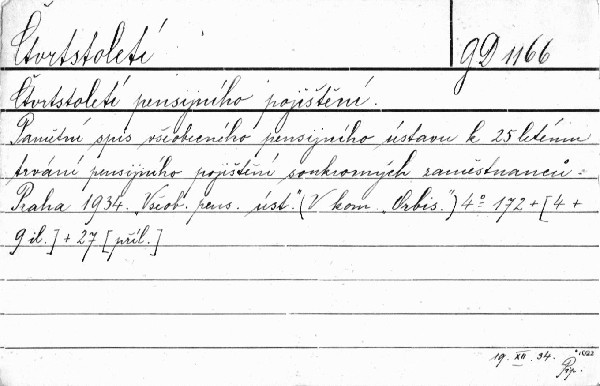 Čtvrtstoletí
GD 1166
Čtvrtstoletí pensijního pojištění.
Pamětní spis všeobecného pensijního ústavu k 25letému
trvání pensijního pojištění soukromých zaměstnanců.
Praha 1934. „Všeob. pens. úst.“ (V kom. „Orbis.“) 4° 172 + [4 +
9 il.] + 27 [příl.]
19. XII. 34.